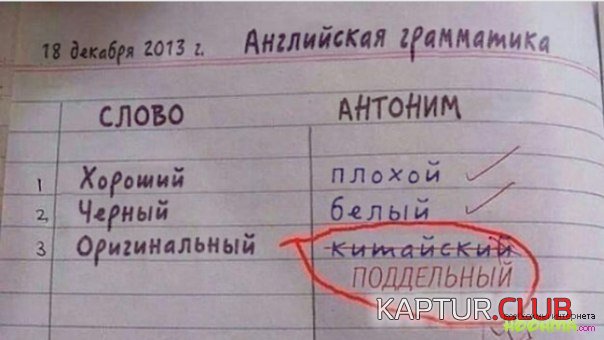 18 декабря 2013 г. Английская грамматика
СЛОВО АНТОНИМ
1 Хороший плохой
2, Черный белый
3 Оригинальный китайский
ПОДДЕЛЬНЫЙ
KAPTUR.CLUB
интернета